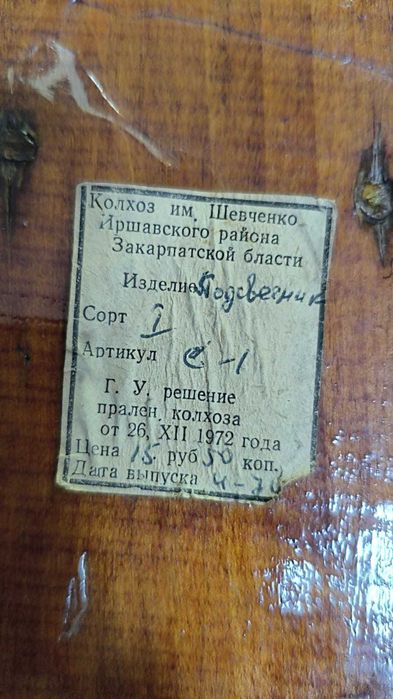 Колхоз им. Шевченко
Иршавского района
Закарпатской бласти
Изделие Подсвечник
Сорт I
Артикул С-1
Г. У. решение
прален, колхоза
от 26, XII 1972 года
Цена 15 руб 50 коп.
Дата выпуска